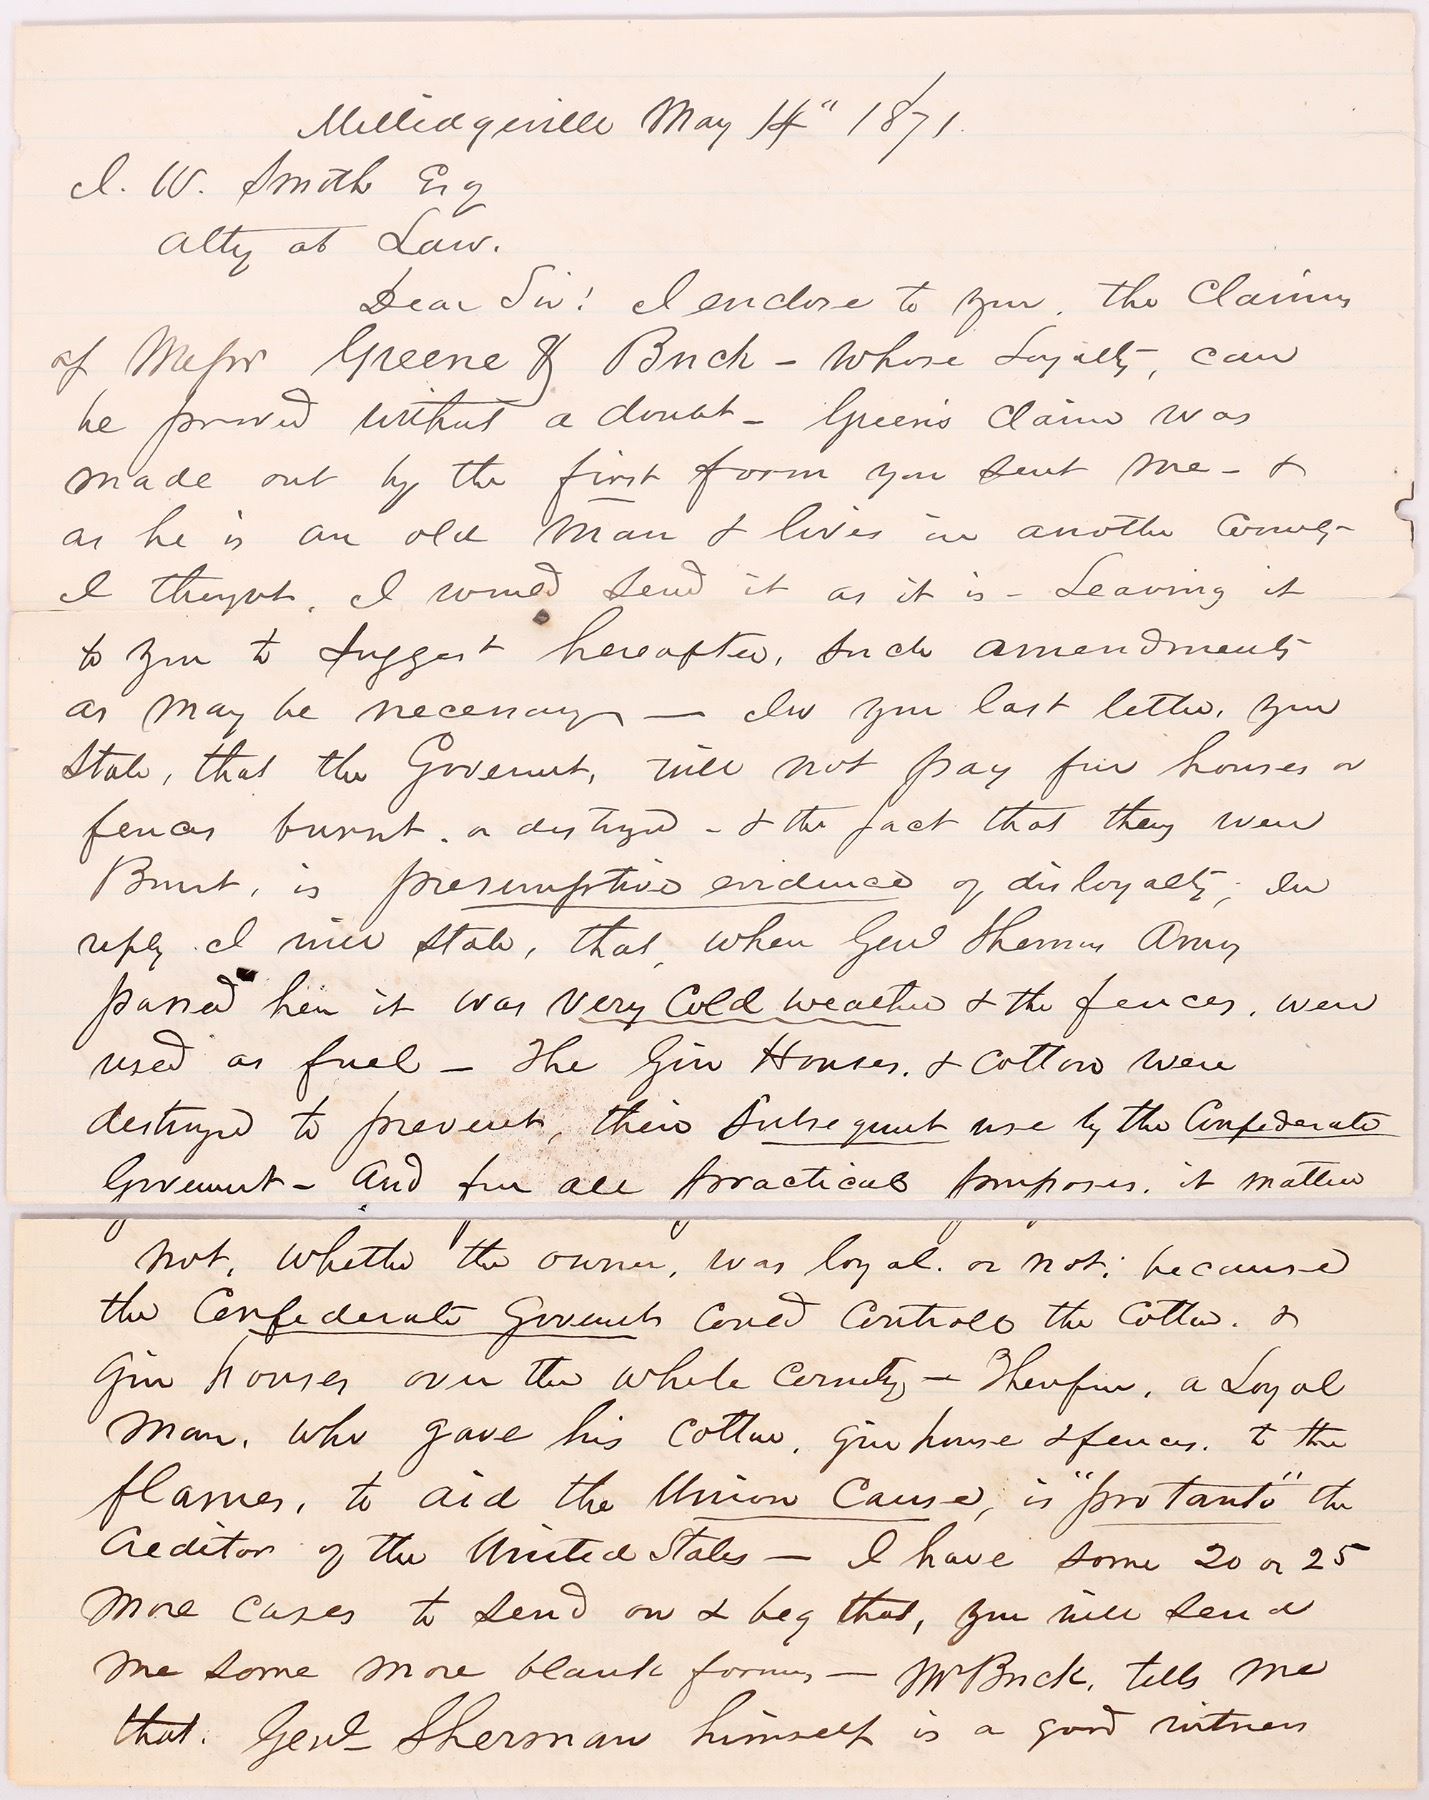 Milledgeville May 14" 1871.
I. W. Smith Esq
Atty at Law.
Dear Sir! I enclose to you, the Claims
of Messrs Greene & Brick – whose Loyalty, can
be proved without a doubt – Green's claim was
made out by the first form you sent me – &
as he is an old man & lives in another County
I thought, I would send it as it is – Leaving it
to you to suggest hereafter, such amendments
as may be necessary — In your last letter, you
state, that the Goverment, will not pay for houses or
fences burnt, or destroyed – & the fact that they were
Burnt, is presumptive evidence of disloyalty; In
reply I will state, that, when Genl Shermans Army
passed here it was very Cold weather & the fences, were
used as fuel – The Gin Houses, & cotton were
destroyed to prevent, their subsequent use by the Confederate
Goverment – And for all practical purposes, it matters
not, whether the owner, was loyal, or not; because
the Confederate Goverment could control the Cotton, &
gin houses over the whole Country – Therefore, a Loyal
man, who gave his cotton, gin house & fences, to the
flames, to aid the Union Cause, is "pro tanto" the
Creditor of the United States — I have some 20 or 25
more cases to send on & beg that, you will send
me some more blank forms — Mr Brick, tells me
that, Genl Sherman himself is a good witness